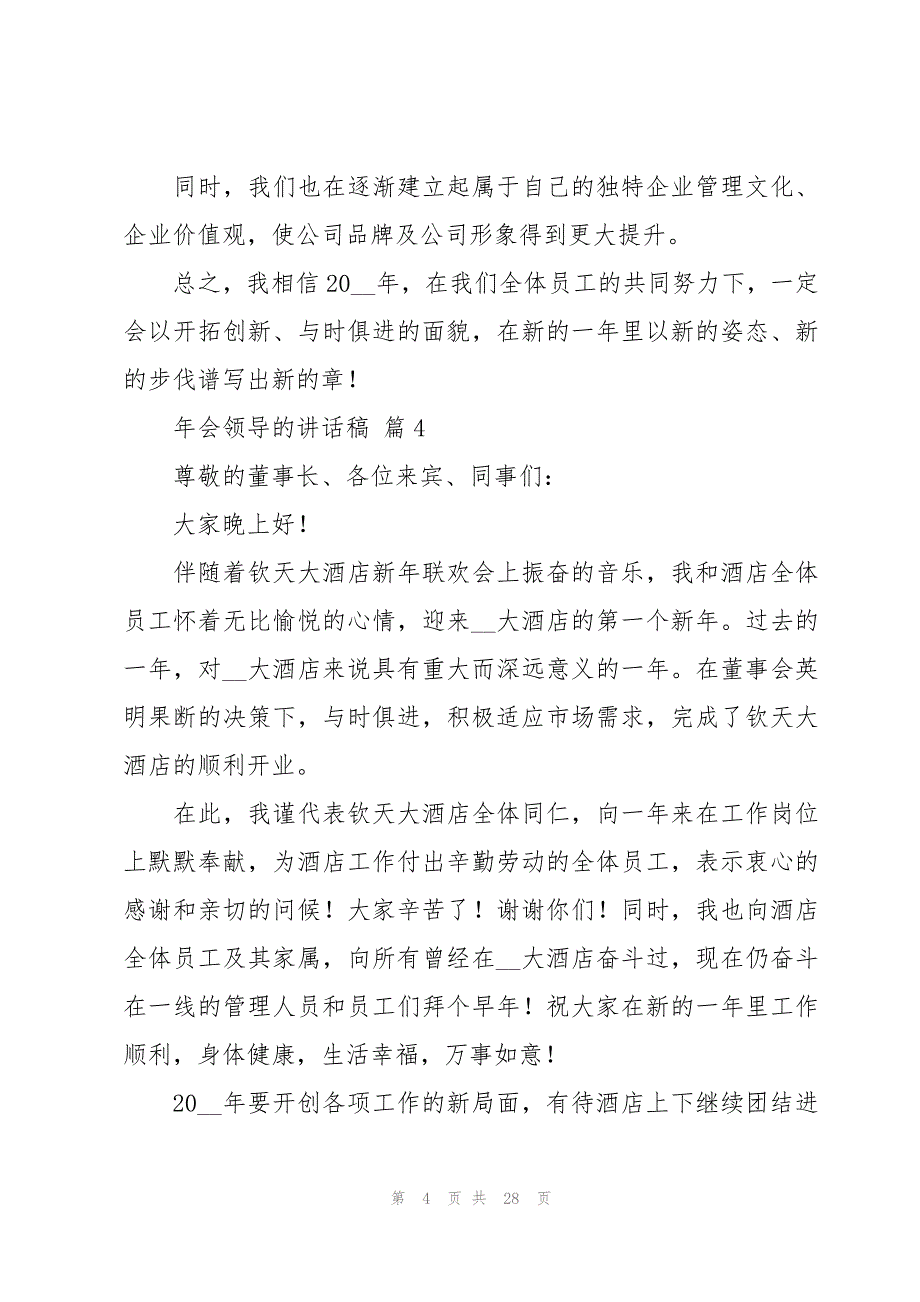 同时，我们也在逐渐建立起属于自己的独特企业管理文化、
企业价值观，使公司品牌及公司形象得到更大提升。
总之，我相信20__年，在我们全体员工的共同努力下，一定
会以开拓创新、与时俱进的面貌，在新的一年里以新的姿态、新
的步伐谱写出新的章！
年会领导的讲话稿 篇4
尊敬的董事长、各位来宾、同事们：
大家晚上好！
伴随着钦天大酒店新年联欢会上振奋的音乐，我和酒店全体
员工怀着无比愉悦的心情，迎来__大酒店的第一个新年。过去的
一年，对__大酒店来说具有重大而深远意义的一年。在董事会英
明果断的决策下，与时俱进，积极适应市场需求，完成了钦天大
酒店的顺利开业。
在此，我谨代表钦天大酒店全体同仁，向一年来在工作岗位
上默默奉献，为酒店工作付出辛勤劳动的全体员工，表示衷心的
感谢和亲切的问候！大家辛苦了！谢谢你们！同时，我也向酒店
全体员工及其家属，向所有曾经在__大酒店奋斗过，现在仍奋斗
在一线的管理人员和员工们拜个早年！祝大家在新的一年里工作
顺利，身体健康，生活幸福，万事如意！
20__年要开创各项工作的新局面，有待酒店上下继续团结进
第 4 页 共 28 页